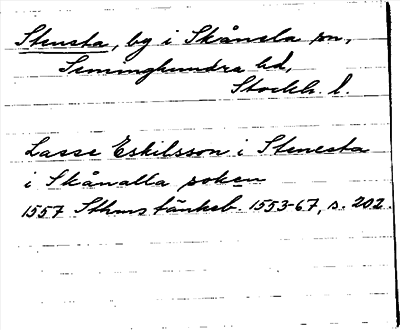 Stensta, by i Skånela sn,
Seminghundra hd,
Stockh. l.
Lasse Eskilsson i Stenesta
i Skånalla soken
1557 Sthms tänkeb. 1553-67, s. 202.